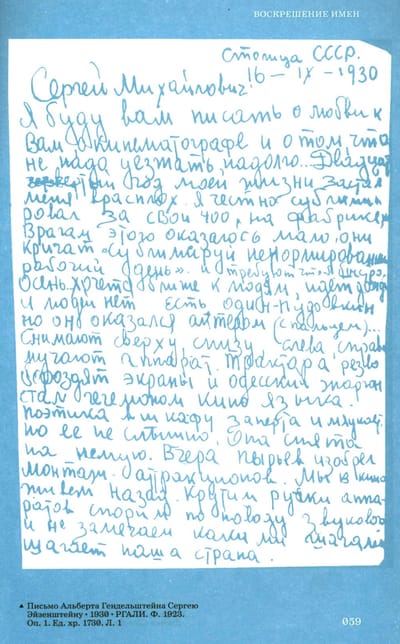 ВОСКРЕШЕНИЕ ИМЕН
Столица СССР.
16 – IX – 1930
Сергей Михайлович!
Я буду вам писать о любви к
Вам о кинематографе и о том, что
не надо уезжать надолго... Двадцат
четвертый год моей жизни застал
меня врасплох. Я честно сублими
ровал за свои 400, на фабрике.
Врагам этого оказалось мало, они
кричат "сублимируй ненормированный
рабочий день". и требуют
Осень. хочется ближе к людям, идет дождь
и людей нет есть один – Пудовкин
но он оказался актером (с пальцем)...
Снимают сверху, снизу слева, справа
мучают аппарат. Трактора резво
бороздят экраны и одесский жаргон
стал гегемоном кино языка.
поэтика в шкафу заперта и мяукает
но ее не слышно. Она снята
на немую. Вчера Пырьев изобрел
монтаж аттракционов. Мы в кино
живем назад. Крутим ручки аппа-
ратов спорим по поводу звукового
и не замечаем какими шагами
шагает наша страна.
▲ Письмо Альберта Гендельштейна Сергею
Эйзенштейну • 1930 • РГАЛИ. Ф. 1923.
Оп. 1. Ед. хр. 1730. Л. 1
059